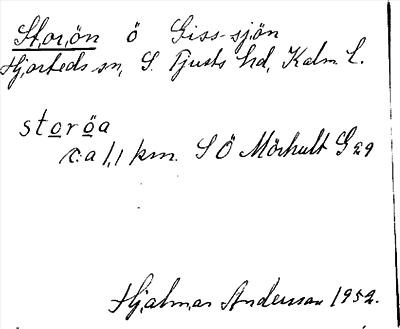 Storön ö Giss-sjön
Hjorteds sn, S. Tjusts hd, Kalm. l.
storöa
c:a 1,1 km. SÖ Mörhult G 29
Hjalmar Andersson 1952.